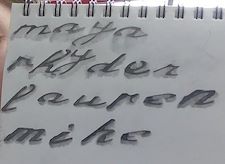 maya
rkyder
lauren
mike